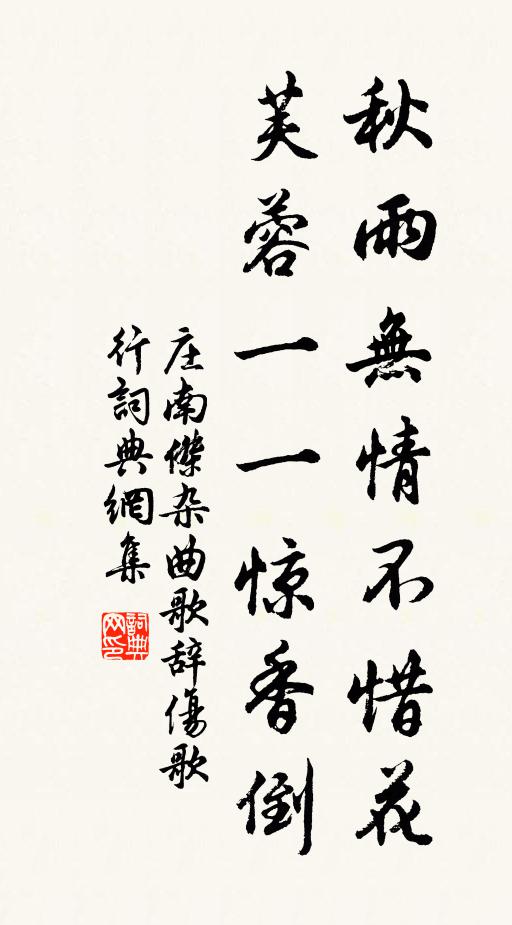 秋雨無情不惜花
芙蓉一一惊香倒
庄南傑杂曲歌辞傷歌
行詞典網集
詞典
网印